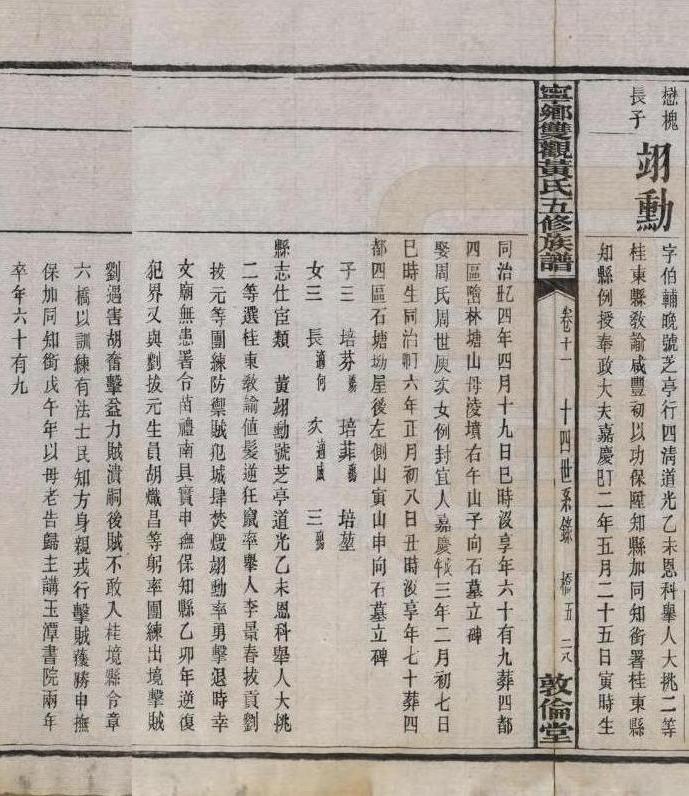 懋槐
長子
翊勳
字伯輔晚號芝亭行四清道光乙未恩科舉人大挑二等
桂東縣敎諭咸豐初以功保陞知縣加同知銜署桂東縣
知縣例授奉政大夫嘉慶丁巳二年五月二十五日寅時生
寧鄉雙觀黃氏五修族譜
卷十一
十四世系錄
橋五
二八
敦倫堂
同治乙丑四年四月十九日巳時沒享年六十有九葬四都
四區 林塘山母淩墳右午山子向石墓立碑
娶周氏周世庚次女例封宜人嘉慶戊午三年二月初七日
巳時生同治丁卯六年正月初八日丑時沒享年七十葬四
都四區石塘坳屋後左側山寅山申向石墓立碑
子三 培芬 培菲 培堃
女三 長適何 次適成 三殤
縣志仕宦類 黃翊勳號芝亭道光乙未恩科舉人大挑
二等選桂東敎諭値髮逆狂竄率舉人李景春拔貢劉
拔元等團練防禦賊犯城肆焚燬翊勳率勇擊退時幸
文廟無恙署令苗禮南具實申撫保知縣乙卯年逆復
犯界又與劉拔元生員胡熾昌等躬率團練出境擊賊
劉遇害胡奮擊益力賊潰嗣後賊不敢入桂境縣令章
六橋以訓練有法士民知方身親戎行擊賊獲勝申撫
保加同知銜戊午年以母老告歸主講玉潭書院兩年
卒年六十有九